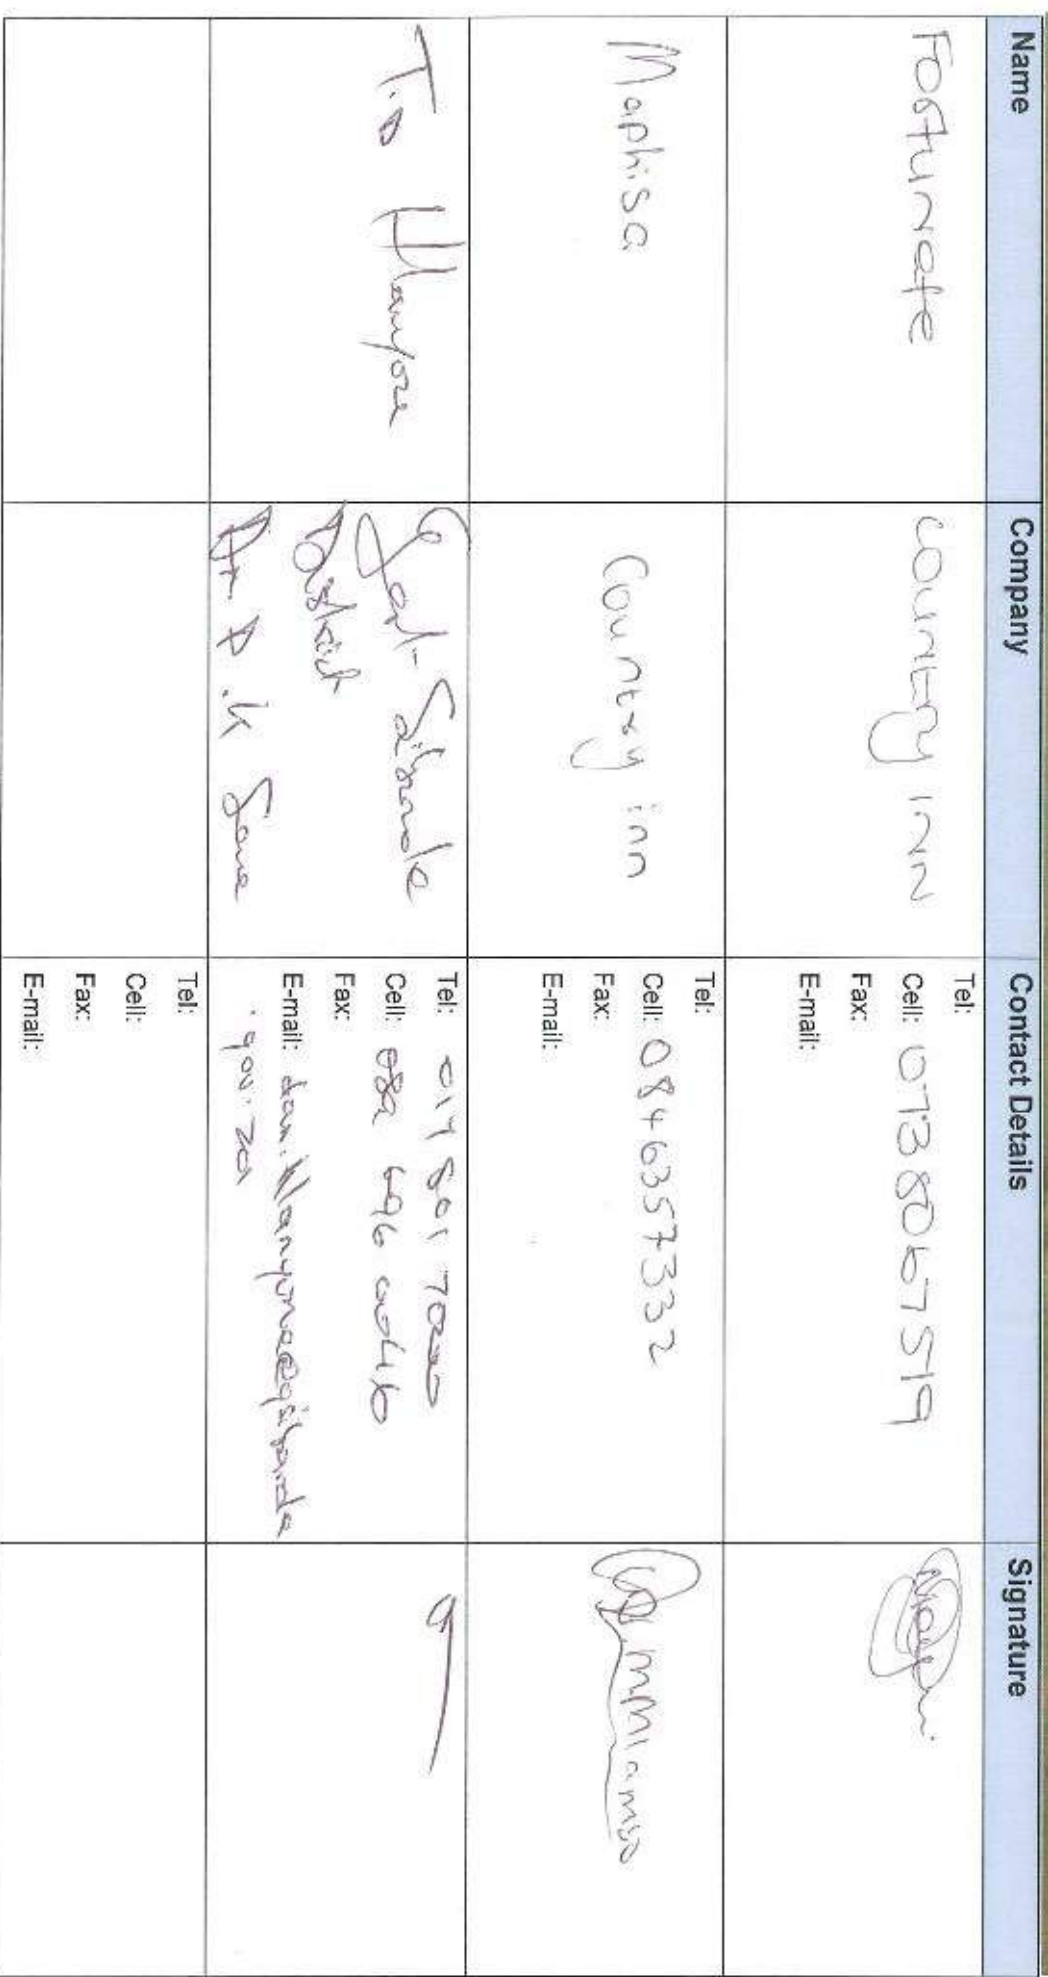 Name Company Contact Details Signature
Fortunate Country INN Tel:
Cell: 0738067519
Fax:
E-mail:
Maphisa Country inn Tel:
Cell: 0846357332
Fax:
E-mail:
T.D Hlanyane Gert Sibande Tel: 017 801 7000
District Cell: 082 696 0046
Fax:
Dr P.K Seme E-mail:
.gov.za
Tel:
Cell:
Fax:
E-mail: